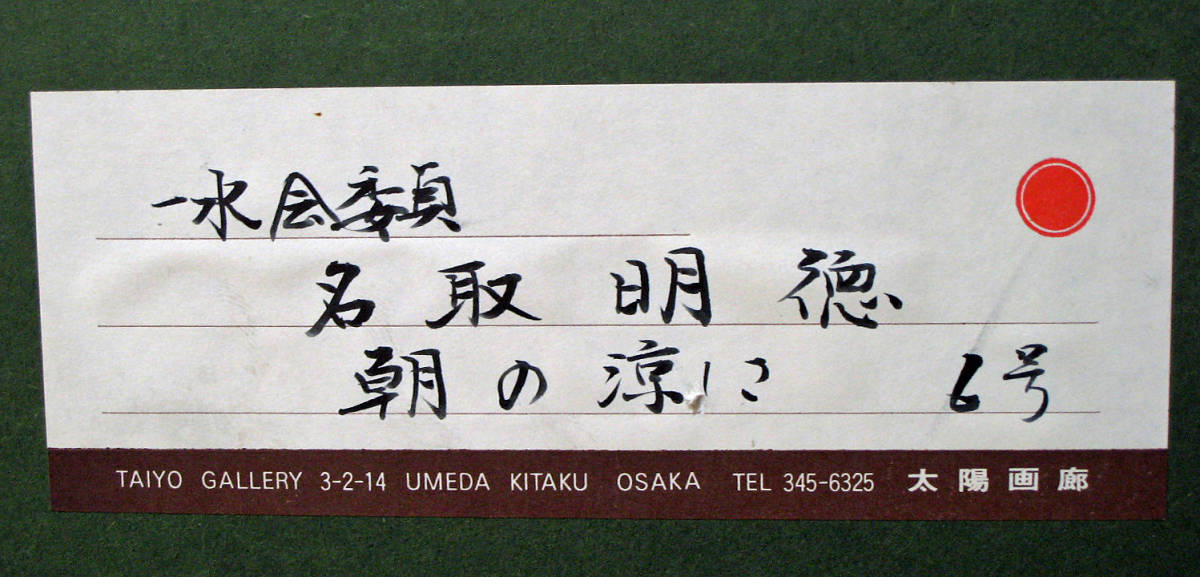 一水会委員
名取明徳
朝の涼に 6号
TAIYO GALLERY 3-2-14 UMEDA KITAKU OSAKA TEL 345-6325 太陽画廊